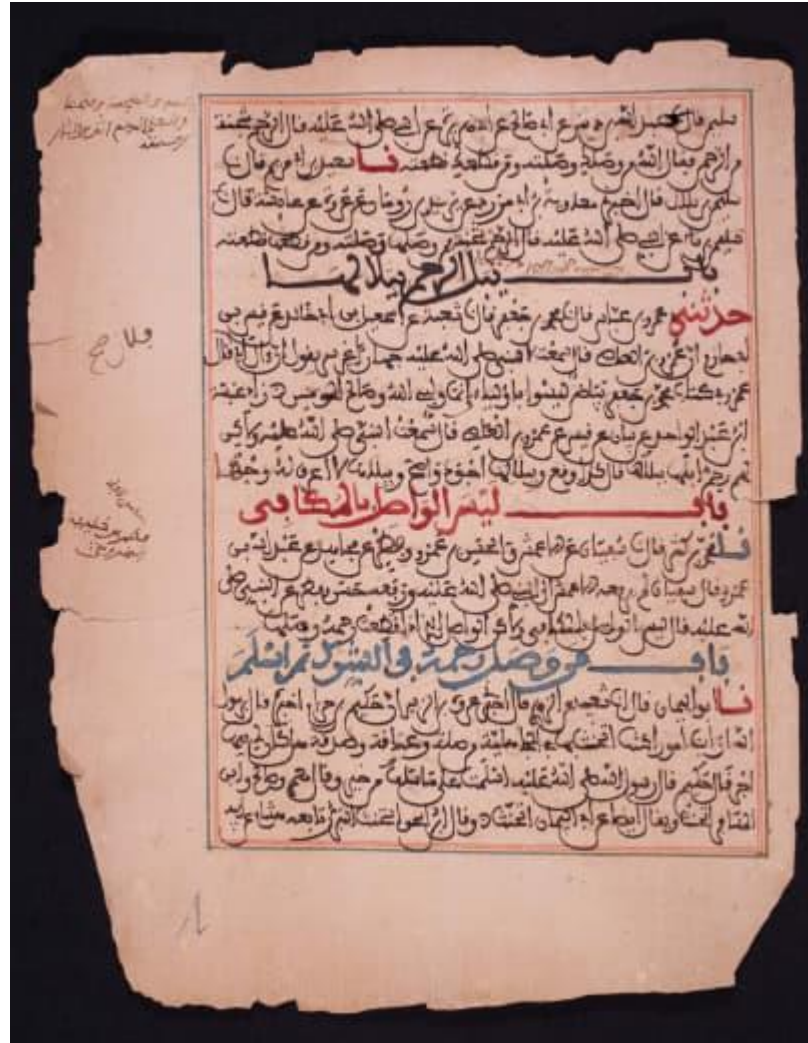 سليمن قال نا عبد الله بن دينر عن ابي صالح عن ابي هريرة عن النبي صلى الله عليه قال الرحم شجنة
من الرحمن فقال الله من وصلك وصلته ومن قطعك قطعته نا سعيد بن ابي مريم قال نا
سليمن بن بلال قال اخبرني معاوية بن ابي مزرد عن يزيد بن رومان عن عروة عن عائشة قالت
عن النبي صلى الله عليه قال الرحم شجنة من وصلها وصلته ومن قطعها قطعته
باب يبل الرحم ببلالها
حدثني عمرو بن عباس قال نا محمد بن جعفر قال نا شعبة عن اسمعيل بن ابي خالد عن قيس بن
ابي حازم ان عمرو بن العاص قال سمعت النبي صلى الله عليه جهارا غير سر يقول ان ال ابي قال
عمرو في كتاب محمد بن جعفر بياض ليسوا باوليائي انما وليي الله وصالح المومنين زاد عنبسة
ابن عبد الواحد عن بيان عن قيس عن عمرو بن العاص قال سمعت النبي صلى الله عليه ولكن
لهم رحم ابلها ببلالها قال كذا وقع وببلالها اجود واصح وببلاها لا اعرف له وجها
باب ليس الواصل بالمكافي
نا محمد بن كثير قال نا سفيان عن الاعمش والحسن بن عمرو وفطر عن مجاهد عن عبد الله بن
عمرو قال سفيان لم يرفعه الاعمش الى النبي صلى الله عليه ورفعه حسن وفطر عن النبي صلى
الله عليه قال ليس الواصل بالمكافي ولكن الواصل الذي اذا قطعت رحمه وصلها
باب من وصل رحمه في الشرك ثم اسلم
نا ابو اليمان قال انا شعيب عن الزهري قال اخبرني عروة بن الزبير ان حكيم بن حزام اخبره قال يرسول
الله ارايت امورا كنت اتحنث بها في الجاهلية من صلة وعتاقة وصدقة هل كان لي فيها
اجر قال حكيم قال رسول الله صلى الله عليه اسلمت على ما سلف من خير وقال معمر وصالح وابن
المسافر اتحنث ويقال ايضا عن ابي اليمان اتحنت وقال ابن اسحق التحنث التبرر تابعه هشام عن ابيه
ببلال صح